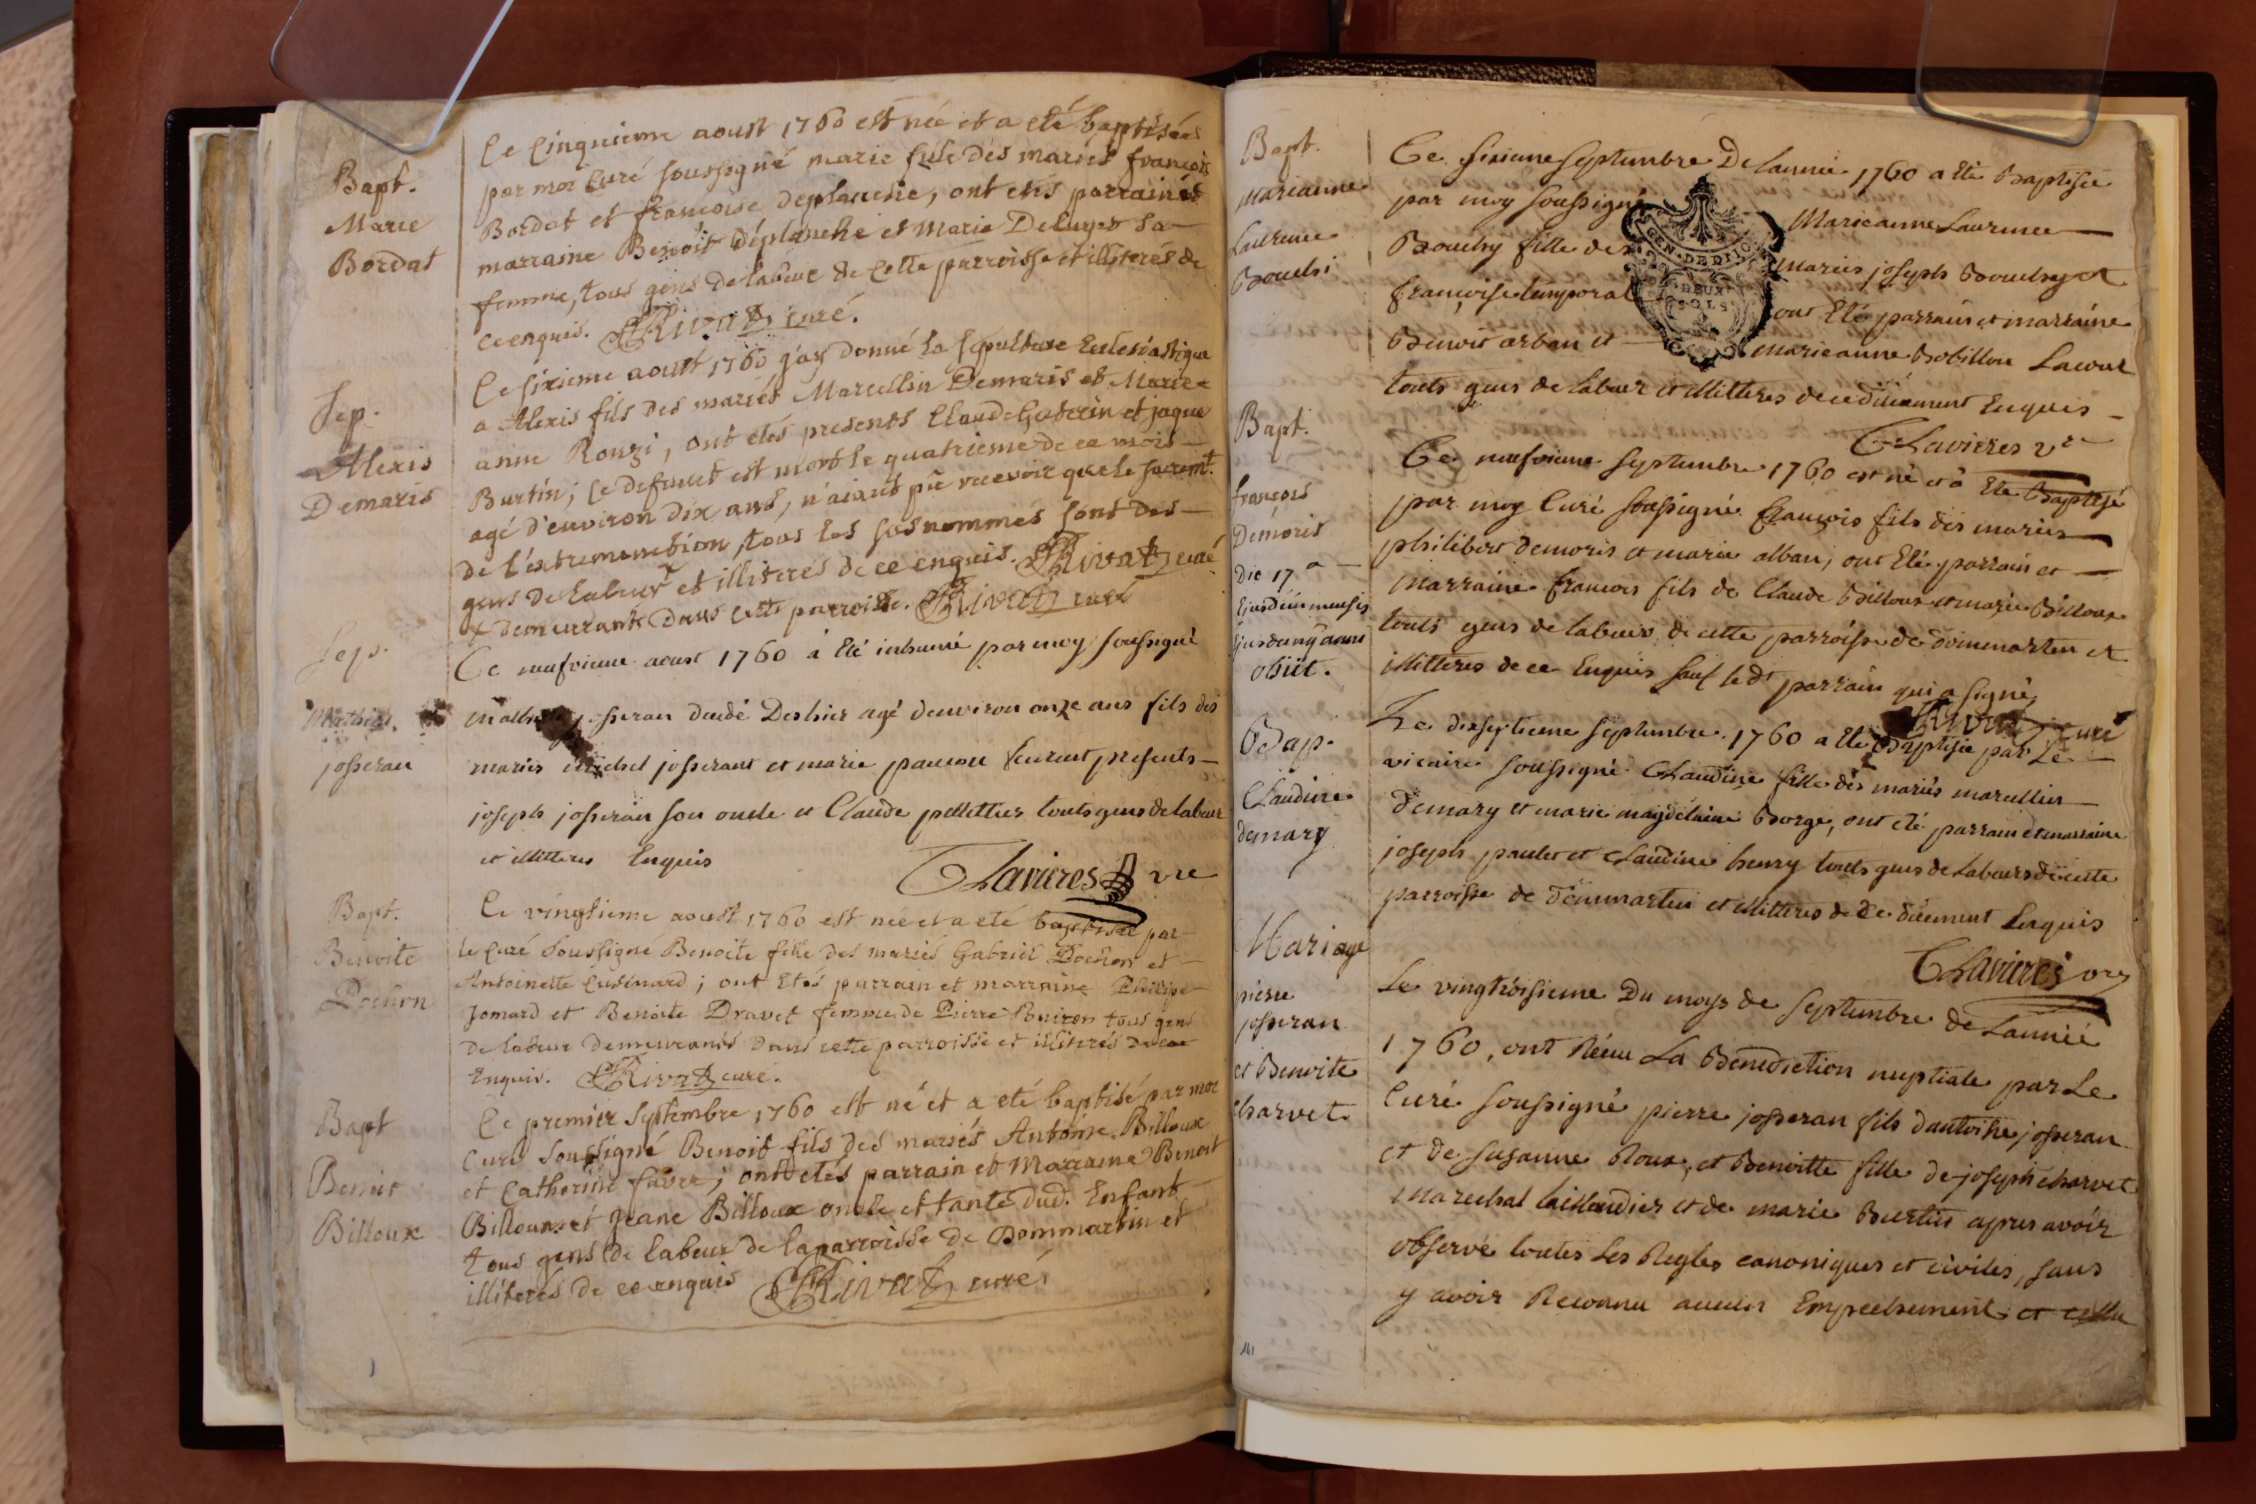 Bapt.
Marie
Bordat
Le Cinquieme aoust 1760 est neé et a eté baptiseé
par moi Curé soussigné marie fille des mariés françois
Bordat et françoise deplanche, ont etés parrain et
marraine Benoit déplanche et Marie Deluyer sa
femme, tous gens de labeur de cette parroisse et illiterés de
ce enquis. Rivat curé.
Sep.
Alexis
Demaris
Ce sixieme aoust 1760 j'ay donné la sepulture Eclesiastique
a Alexis fils des mariés Marcellin Demaris et Marie
anne Ronzi, ont etés presents Claude Guterin et jaque
Burtin; le defunct est mort le quatrieme de ce mois
agé d'environ dix ans, n'aiant pu recevoir que le sacremt.
de l'extremonction, tous les susnommés sont des
gens de labeur et illiterés de ce enquis. Rivat curé
x demeurants dans cette parroisse. Rivat curé
Sep.
Mathieu
josseran
Ce neufvieme aoust 1760 a Eté inhumé par moy soussigné
josseran decedé Deshier agé denviron onze ans fils des
mariés michel josserant et marie pancou furent presents
joseph josseran son oncle et Claude pelletier touts gens de labeur
et illitteres Enquis
Clavieres vre
Bapt.
Benoite
Pochon
Ce vingtieme aoust 1760 est neé et a eté baptiseé par
le curé soussigné Benoite fille des mariés Gabriel Pochon et
Antoinette Cusinard; ont etés parrain et marraine Philipe
Jomard et Benoite Dravet femme de Pierre Buiron tous gens
de labeur demeurants dans cette parroisse et illiterés de ce
Enquis. Rivat curé.
Bapt
Benoit
Billoux
Ce premier Septembre 1760 est né et a eté baptisé par moi
Curé soussigné Benoit fils des mariés Antoine Billoux
et Catherine favre; ont etés parrain et Marraine Benoit
Billoux et Jeane Billoux oncle et tante dud. Enfant
tous gens de labeur de la parroisse de Dommartin et
illiterés de ce enquis Rivat curé
Bapt.
Marieanne
Laurence
Bouchi
Ce sixieme Septembre De lannée 1760 a Eté Baptisée
par moy soussigné Marieanne Laurence
Bouchy fille des Mariés joseph Bouchy et
françoise temporal ont Eté parrain et marraine
Benoit arban et Marieanne Bobillon Lacour
touts gens de labeur et illitteres de ce dûement Enquis
Clavieres vre
GEN. DE DIJON
DEUX
SOLS
Bapt.
françois
Demoris
die 17a
Ejusdem mensis
Ejusdemq anni
obiit.
Ce neufvieme septembre 1760 est né et a Eté Baptisé
par moy Curé soussigné françois fils des mariés
philibert demoris et marie alban; ont Eté parrain et
marraine francois fils de Claude Billoux et marie Billoux
touts gens de labeur de cette parroisse de dommartin et
illitteres de ce Enquis sauf le dt parrain qui a signé
Rivat curé
Bap.
Claudine
demary
Le dixseptieme septembre 1760 a Eté Baptisée par Le
vicaire soussigné Claudine fille des mariés marcellin
demary et marie magdelaine Borge, ont eté parrain et marraine
joseph paulet et Claudine henry touts gens de Labeurs de cette
parroisse de dommartin et illitteres de Ce dûement Enquis
Clavieres vre
Mariage
pierre
josseran
et Benoite
charvet
Le vingtroisieme Du moys de Septembre de Lannée
1760, ont Réçeu La Bénédiction nuptiale par Le
Curé soussigné pierre josseran fils dantoine josseran
et de susanne Roux, et Benoitte fille de joseph charvet
marechal taillandier et de marie Burtin apres avoir
observé toutes Les Regles canoniques et civiles, sans
y avoir Reconnu aucun Empêchement et
141